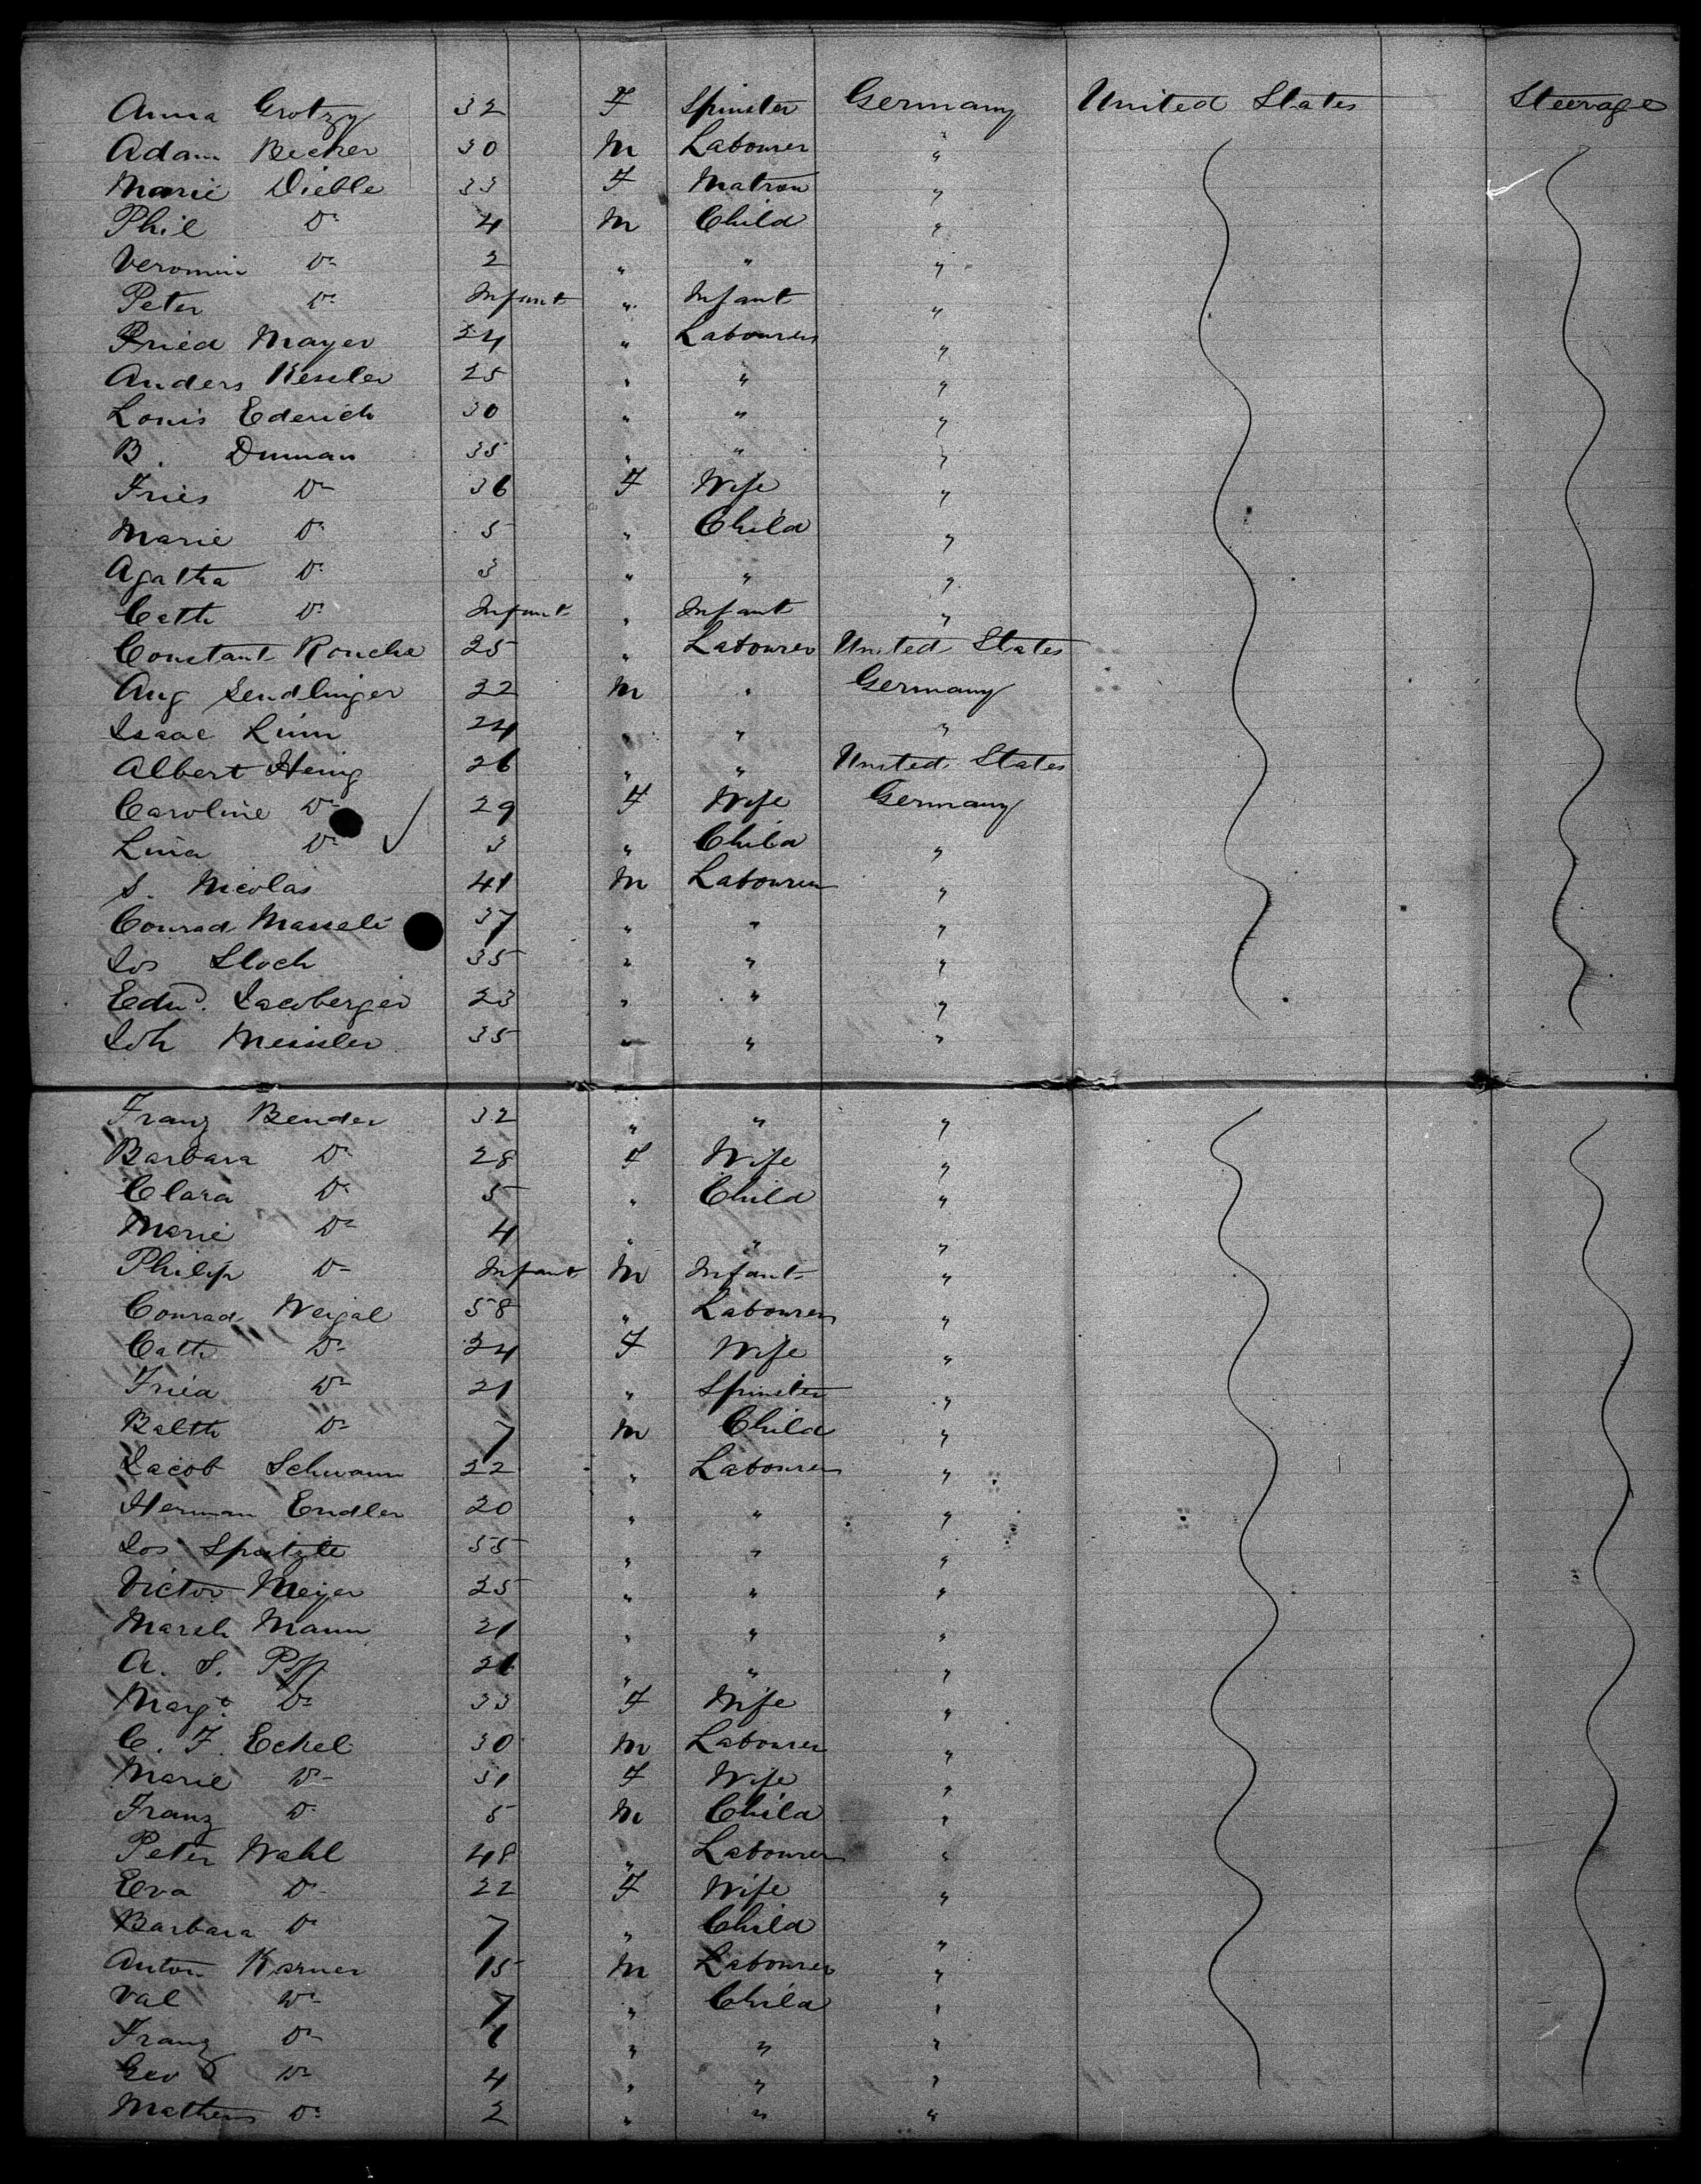 Anna Grotzy 32 F Spinster Germany United States Steerage
Adam Becker 30 M Labourer "
Marie Dieble 33 F Matron "
Phil Do 4 M Child "
Veronin Do 2 " " "
Peter Do Infant " Infant "
Fried Mayer 24 " Labourer "
Anders Kessler 25 " " "
Louis Ederich 30 " " "
B. Dunnan 35 " " "
Fries Do 36 F Wife "
Marie Do 5 " Child "
Agatha Do 3 " " "
Cath Do Infant " Infant "
Constant Rouche 25 " Labourer United States
Aug Sendlinger 32 M " Germany
Isaac Linn 24 " " "
Albert Heing 26 " " United States
Caroline Do 29 F Wife Germany
Lina Do 3 " Child "
S. Nicolas 41 M Labourer "
Conrad Masseli 37 " " "
Jos Sloch 35 " " "
Edwd. Jacoberger 23 " " "
Joh Meissler 35 " " "
Franz Bender 32 " " "
Barbara Do 28 F Wife "
Clara Do 5 " Child "
Marie Do 4 " " "
Philip Do Infant M Infant "
Conrad Weigal 58 " Labourer "
Cath Do 34 F Wife "
Fried Do 21 " Spinster "
Balth Do 7 M Child "
Jacob Schwann 22 " Labourer "
Herman Endler 20 " " "
Jos Spitzle 55 " " "
Victor Meyer 25 " " "
Marsh Mann 21 " " "
A. S. 26 " " "
Margt. Do 33 F Wife "
C. F. Eckel 30 M Labourer "
Marie Do 31 F Wife "
Franz Do 5 M Child "
Peter Wahl 48 " Labourer "
Eva Do 22 F Wife "
Barbara Do 7 " Child "
Anton Karner 15 M Labourer "
Val Do 7 " Child "
Franz Do 6 " " "
Geo Do 4 " " "
Mathews Do 2 " " "